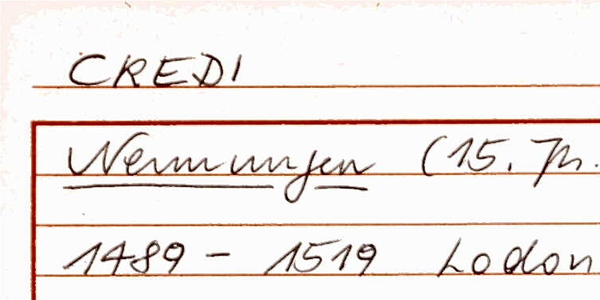 CREDI
Nennungen (15. Jh.
1489 - 1519 Lodon